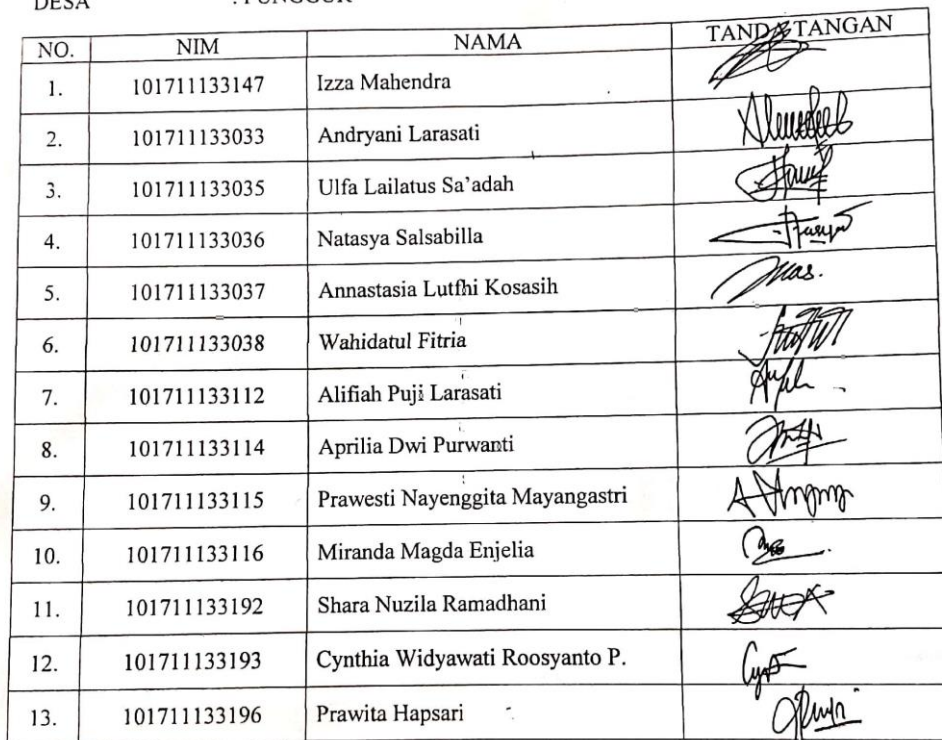 DESA : PUNGGUR
NO. NIM NAMA TANDA TANGAN
1. 101711133147 Izza Mahendra
2. 101711133033 Andryani Larasati
3. 101711133035 Ulfa Lailatus Sa'adah
4. 101711133036 Natasya Salsabilla
5. 101711133037 Annastasia Lutfhi Kosasih
6. 101711133038 Wahidatul Fitria
7. 101711133112 Alifiah Puji Larasati
8. 101711133114 Aprilia Dwi Purwanti
9. 101711133115 Prawesti Nayenggita Mayangastri
10. 101711133116 Miranda Magda Enjelia
11. 101711133192 Shara Nuzila Ramadhani
12. 101711133193 Cynthia Widyawati Roosyanto P.
13. 101711133196 Prawita Hapsari